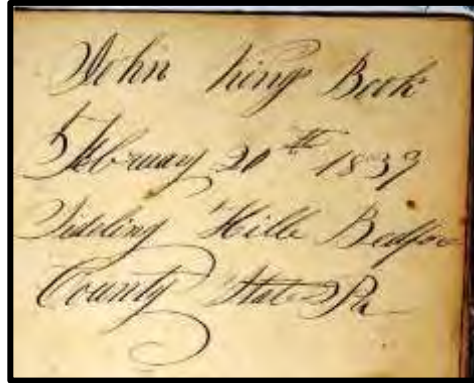 John Kings Book
February 20th 1839
Sideling Hille Bedfor
County State Pa